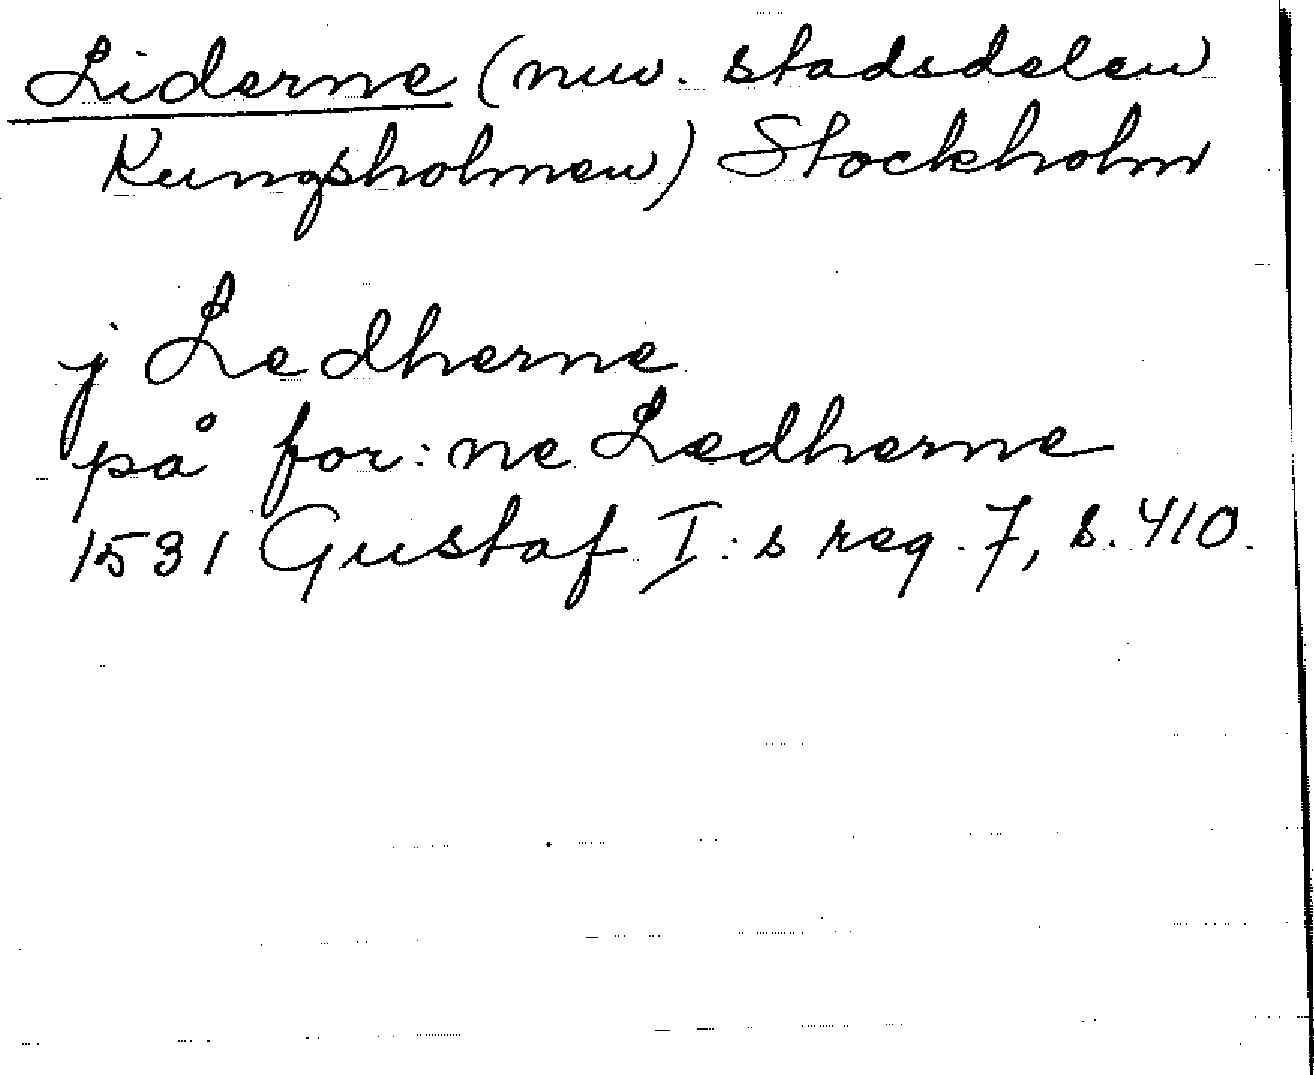 Liderne (nuv. stadsdelen
Kungsholmen) Stockholm
j Ledherne
på for:ne Ledherne
1531 Gustaf I:s reg. 7, s. 410.